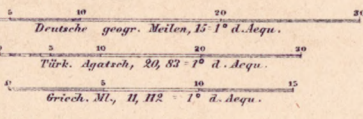 5 10 20 30
Deutsche geogr. Meilen, 15 = 1° d. Aequ.
0 5 10 20 30
Türk. Agatsch, 20, 83 = 1° d. Aequ.
0 5 10 15
Griech. Ml., 11, 112 = 1° d. Aequ.